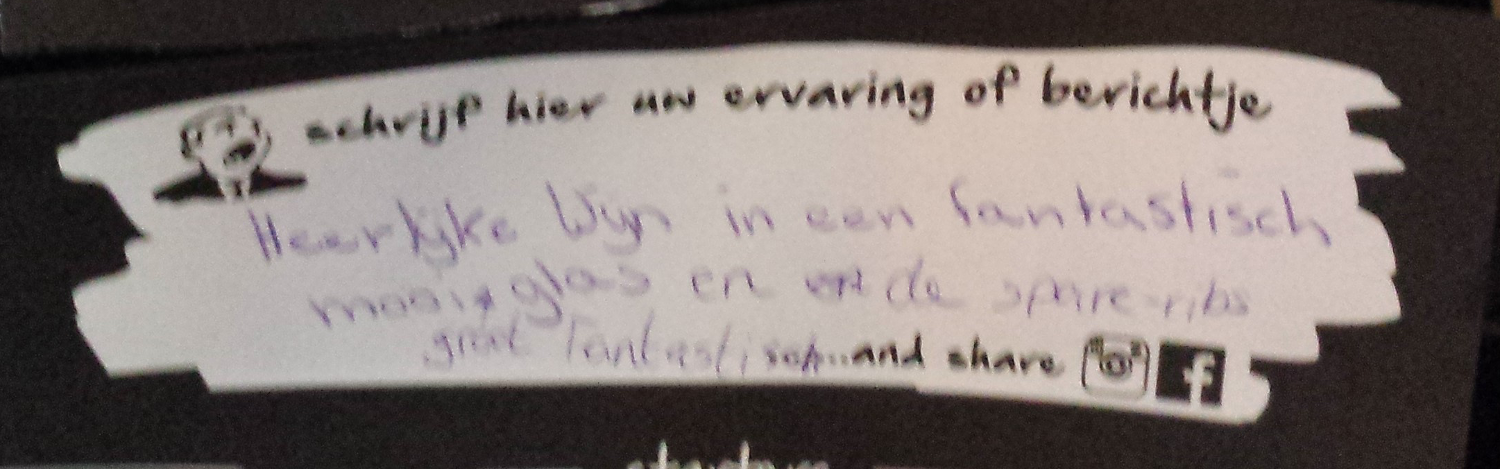 schrijf hier uw ervaring of berichtje
Heerlijke Wijn in een fantastisch
mooi glas en de spare-ribs
fantastisch...and share
f